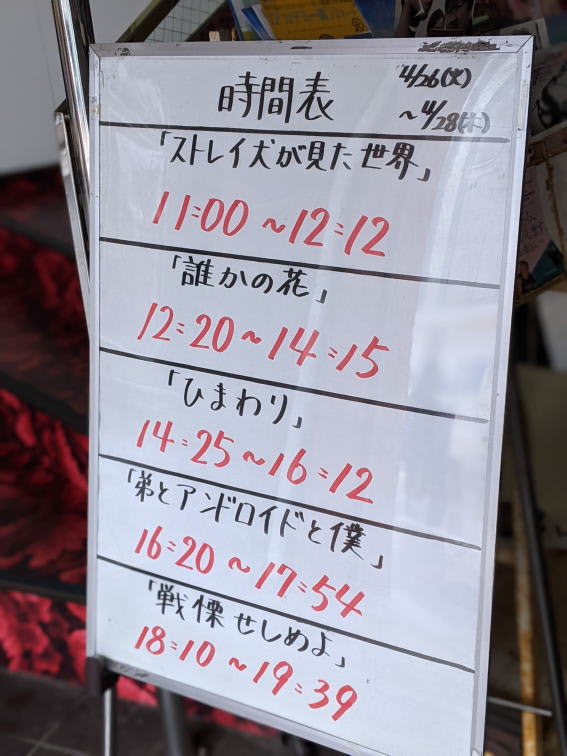 時間表
4/26(火)
~4/28(木)
「ストレイ犬が見た世界」
11:00~12:12
「誰かの花」
12:20~14:15
「ひまわり」
14:25~16:12
「弟とアンドロイドと僕」
16:20~17:54
「戦慄せしめよ」
18:10~19:39